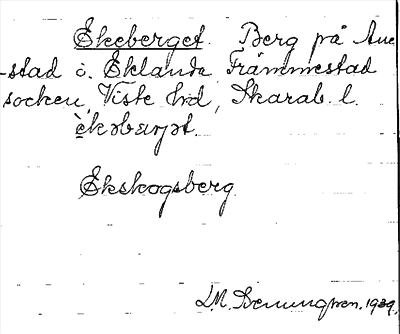 Ekeberget. Berg på Ane
-stad o. Eklanda Främmestad
socken, Viste hrd, Skarab. l.
èkəbærjət.
Ekskogsberg
1939.